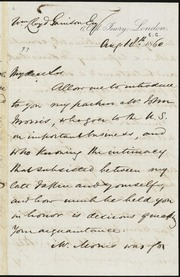 Wm Lloyd Garrison Esq
Old Jewry London.
1860
My dear Sir
Allow me to introduce
to you my partner Mr
Morris, who goes to the U.S.
on important business, and
who knowing the intimacy
that subsisted between my
late Father and yourself,
and how much he held you
in honor is desirous
your acquaintance
Mr Morris was for